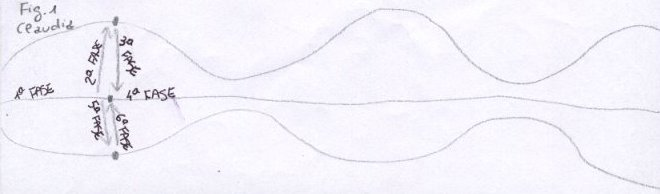 Fig. 1
Claudia
2ª FASE
3ª FASE
1ª FASE
4ª FASE
6ª FASE